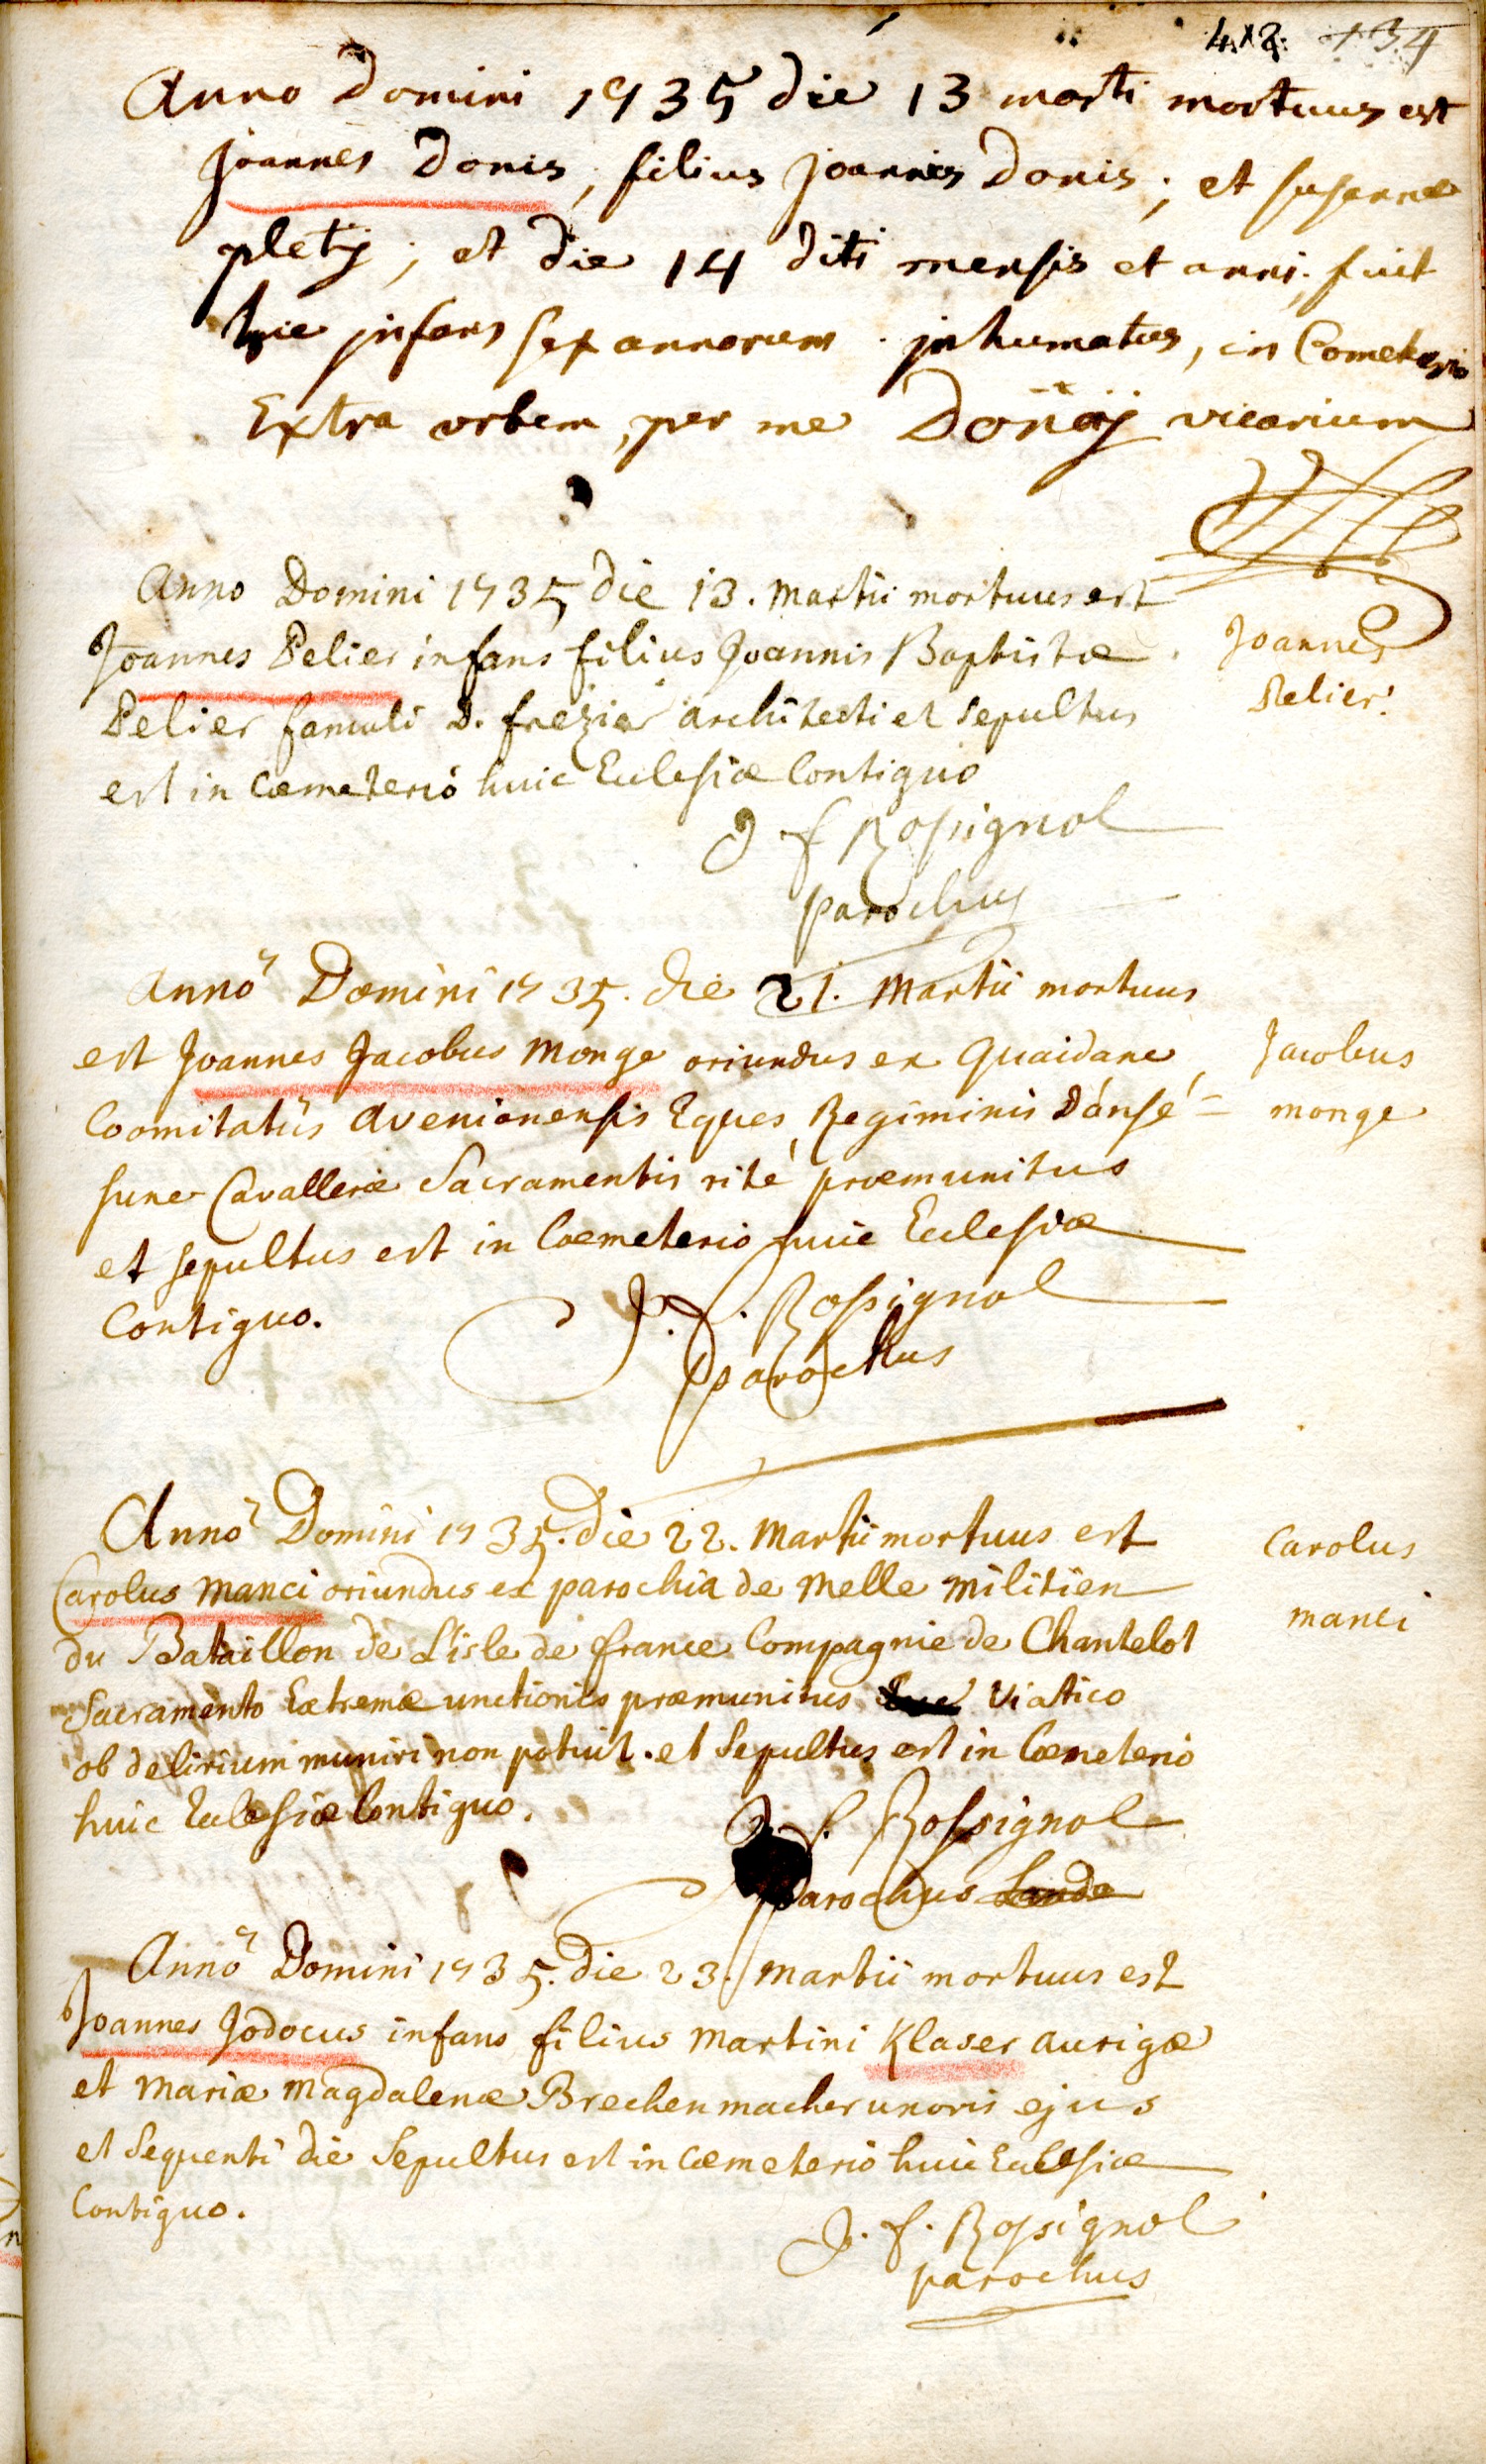 4x2. 134
Anno Domini 1735 die 13 marti mortuus est
Joannes Donis, filius joannis Donis; et susanne
pletj; et die 14 diti mensis et anni. fuit
hic jnfans sex annorum jnhumatus, in Cometerio
Extra urbem, per me Donaÿ vicarium
Anno Domini 1735 die 13. Martii mortuus est
Joannes Pelier infans filius Joannis Baptistæ
Joannes
Pelier famuli D. frezier architecti et sepultus
Pelier.
est in Cæmeterio huic Ecclesiæ Contiguo
J f Rossignol
parochus
Anno Domini 1735. die 21. Martii mortuus
est Joannes Jacobus Monge oriundus ex Quaidane
Jacobus
Coomitatus Avenionensis Eques Regiminis Dánsé=
monge
sune Cavalleriæ Sacramentis rité præmunitus
et sepultus est in Cœmeterio huic Ecclesiæ
Contiguo.
J. f. Rossignol
Parochus
Anno Domini 1735. die 22. Martii mortuus est
Carolus
Carolus Manci oriundus ex parochia de Melle Militien
manci
du Bataillon de L'isle de france Compagnie de Chantelot
Sacramento Extremæ unctionis præmunitus Viatico
ob delirium muniri non potuit. et Sepultus est in Cœmeterio
huic Ecclesiæ Contiguo.
J. f. Rossignol
parochus
Anno Domini 1735. die 23. Martii mortuus est
Joannes Jodocus infans filius Martini Klaser aurigæ
et Mariæ Magdalenæ Brechenmacher uxoris ejus
et Sequenti die Sepultus est in Cœmeterio huic Ecclesiæ
Contiguo.
J. f. Rossignol
parochus